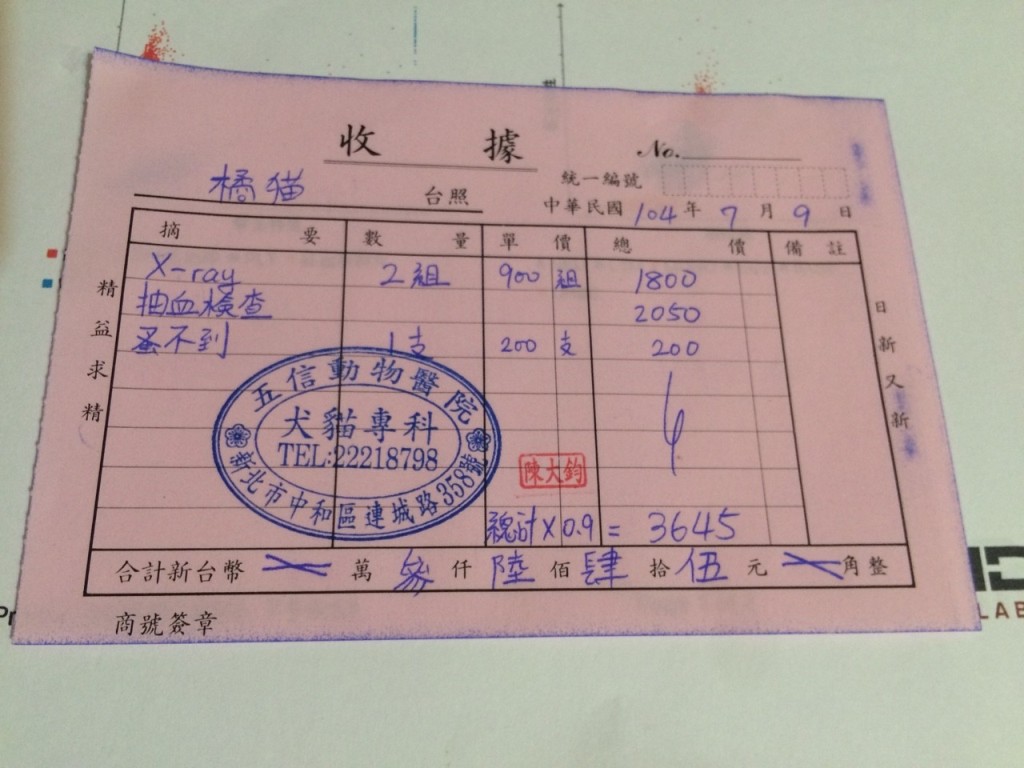 收據 No.
統一編號
橘猫 台照
中華民國 104 年 7 月 9 日
摘要 數量 單價 總價 備註
X-ray 2組 900 組 1800
抽血檢查 2050
蚤不到 1支 200 支 200
精益求精
日新又新
五信動物醫院
犬貓專科
TEL:22218798
新北市中和區連城路358號
陳大鈞
總計×0.9 = 3645
合計新台幣 萬 參 仟 陸 佰 肆 拾 伍 元 角整
商號簽章
LAB